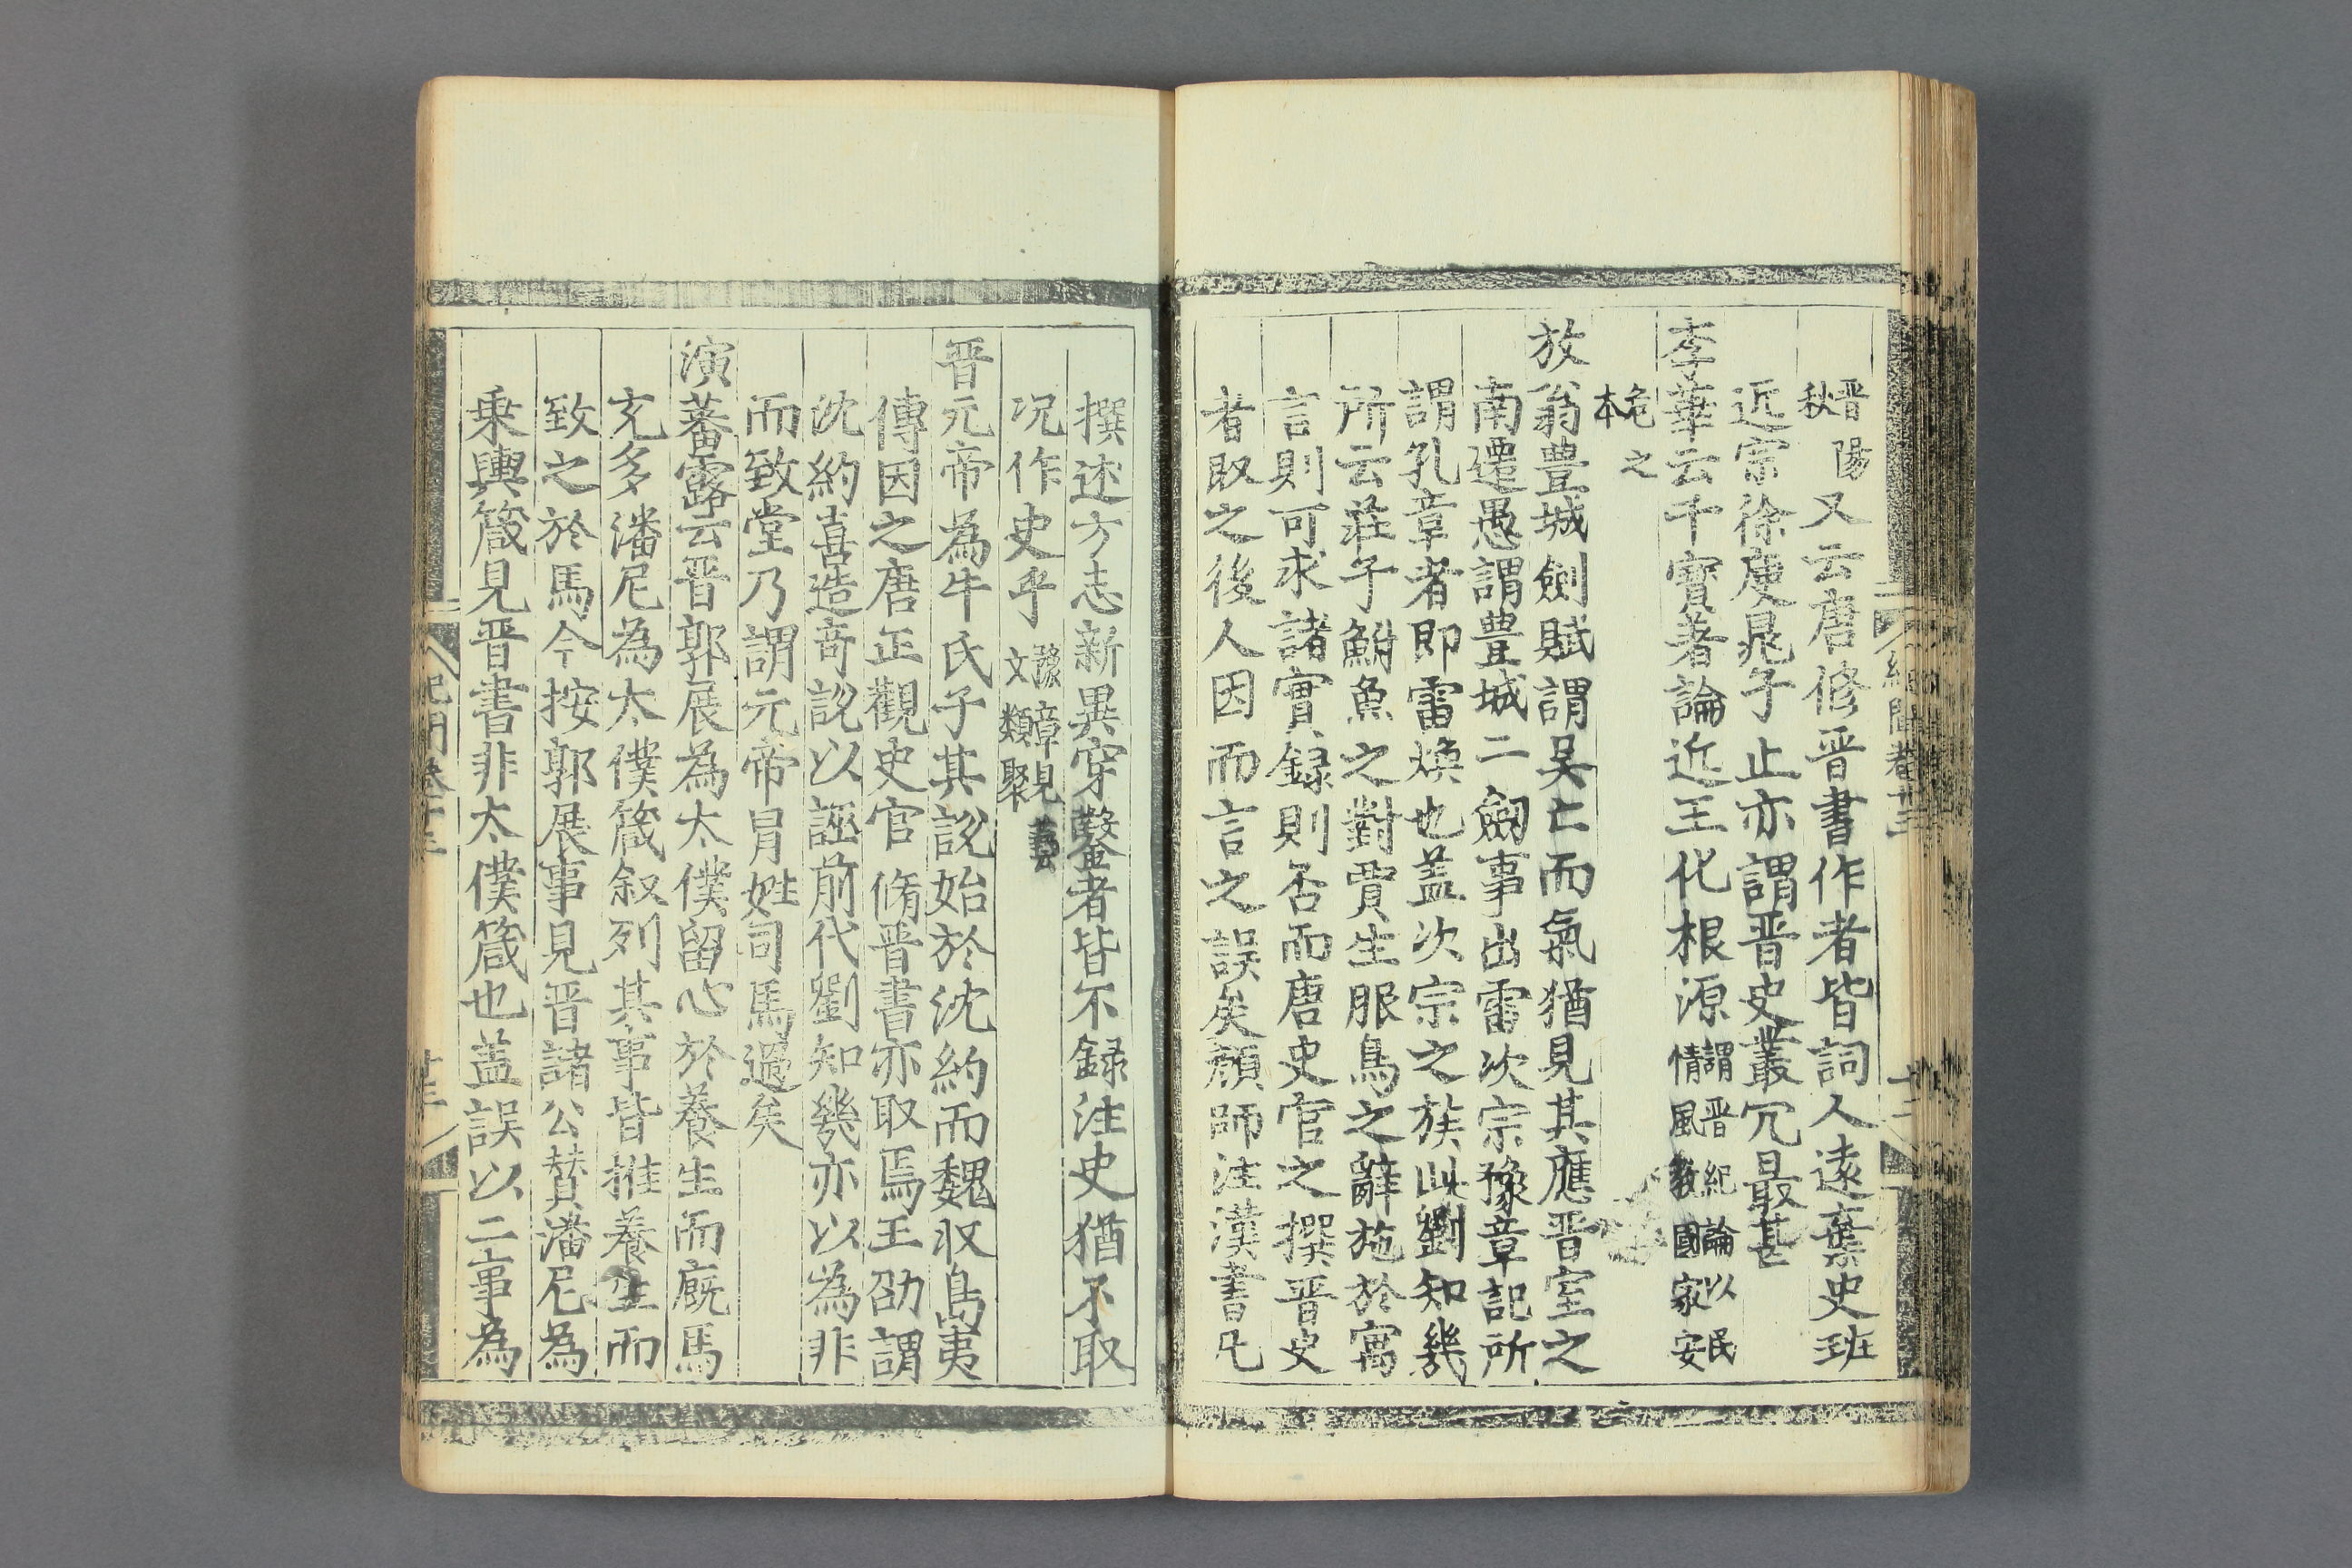 晋陽秋又云唐修晋書作者皆詞人遠棄史班
近宗徐庾晁子止亦謂晋史叢冗最甚
李華云干寳著論近王化根源謂晋紀論以民情風敎國家安
危之本
放翁豊城劍賦謂吴亡而氣猶見其應晋室之
南遷愚謂豊城二劒事出雷次宗豫章記所
謂孔章者即雷煥也盖次宗之族此劉知幾
所云莊子鮒魚之對賈生服鳥之辭施於寓
言則可求諸實録則否而唐史官之撰晋史
者取之後人因而言之誤矣顔師注漢書凡
撰述方志新異穿鑿者皆不録注史猶不取
况作史乎豫章見藝文類聚
晋元帝為牛氏子其說始於沈約而魏収島夷
傳因之唐正觀史官脩晋書亦取焉王劭謂
沈約喜造竒說以誣前代劉知幾亦以為非
而致堂乃謂元帝冐姓司馬過矣
演蕃露云晋郭展為太僕留心於養生而廐馬
充多潘尼為太僕箴叙列其事皆推養生而
致之於馬今按郭展事見晋諸公賛潘尼為
乗輿箴見晋書非太僕箴也盖誤以二事為